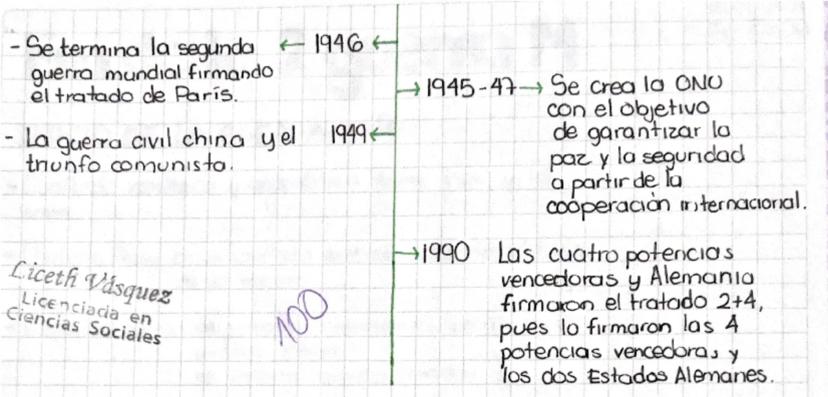 - Se termina la segunda ← 1946 ←
guerra mundial firmando
el tratado de París.
→ 1945-47 → Se crea la ONU
con el objetivo
de garantizar la
paz y la seguridad
a partir de la
cooperación internacional.
- La guerra civil china y el 1949 ←
triunfo comunista.
→ 1990 Las cuatro potencias
vencedoras y Alemania
firmaron el tratado 2+4,
pues lo firmaron las 4
potencias vencedoras y
los dos Estados Alemanes.
Liceth Vásquez
Licenciada en
Ciencias Sociales
100